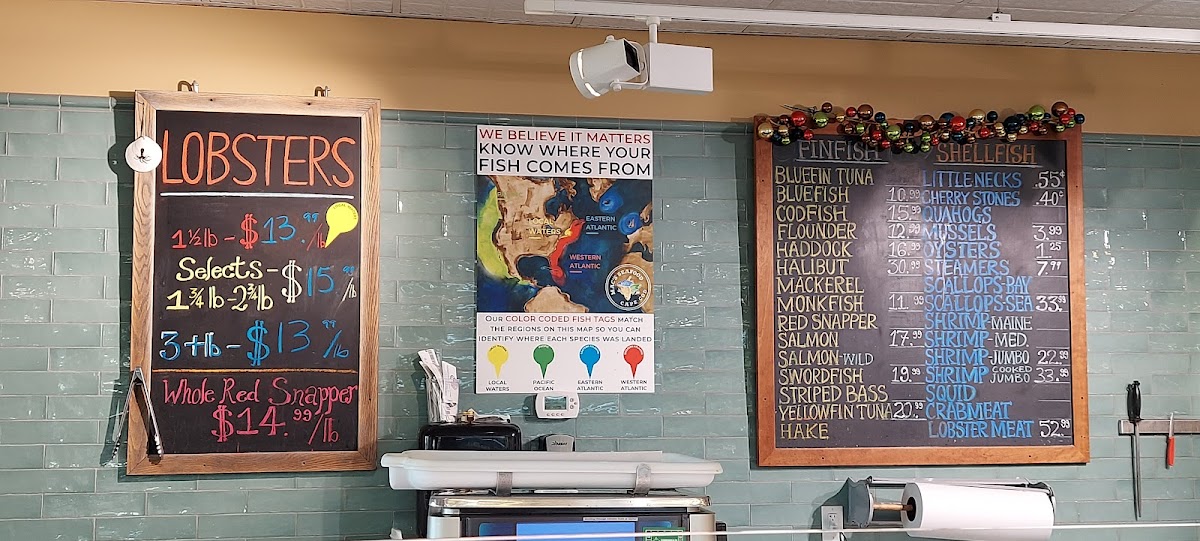 LOBSTERS
1½lb - $13.99/lb
Selects - $15.99/lb
1¾lb-2¾lb
3+lb - $13.99/lb
Whole Red Snapper
$14.99/lb
WE BELIEVE IT MATTERS
KNOW WHERE YOUR
FISH COMES FROM
LOCAL WATERS
EASTERN ATLANTIC
WESTERN ATLANTIC
OUR COLOR CODED FISH TAGS MATCH
THE REGIONS ON THIS MAP SO YOU CAN
IDENTIFY WHERE EACH SPECIES WAS LANDED
LOCAL WATERS
PACIFIC OCEAN
EASTERN ATLANTIC
WESTERN ATLANTIC
FINFISH
BLUEFIN TUNA
BLUEFISH 10.99
CODFISH 15.99
FLOUNDER 12.99
HADDOCK 16.99
HALIBUT 30.99
MACKEREL
MONKFISH 11.99
RED SNAPPER
SALMON 17.99
SALMON-WILD
SWORDFISH 19.99
STRIPED BASS
YELLOWFIN TUNA 20.99
HAKE
SHELLFISH
LITTLE NECKS .55¢
CHERRY STONES .40¢
QUAHOGS
MUSSELS 3.99
OYSTERS 1.25
STEAMERS 7.99
SCALLOPS-BAY
SCALLOPS-SEA 33.99
SHRIMP-MAINE
SHRIMP-MED.
SHRIMP-JUMBO 22.99
SHRIMP COOKED JUMBO 33.99
SQUID
CRABMEAT
LOBSTER MEAT 52.99